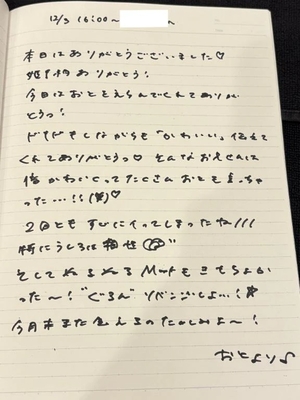 12/3 16:00〜 へ
本日はありがとうございました♡
姫予約ありがとう!
今日はおとをえらんでくれてありが
とうっ!
ドキドキしながらも "かわいい" 伝えて
くれてありがとうっ♡ そんなお兄さんに
倍かわいくってたくさんおとも
った…!!♡
2回とも すぐにイってしまったね///
特にうしろは 相性
そして ぬるぬる Matもきもちよか
った〜! "ぐるん" リベンジしよ…!
今月末また会えるのたのしみよ〜!
おとより♪